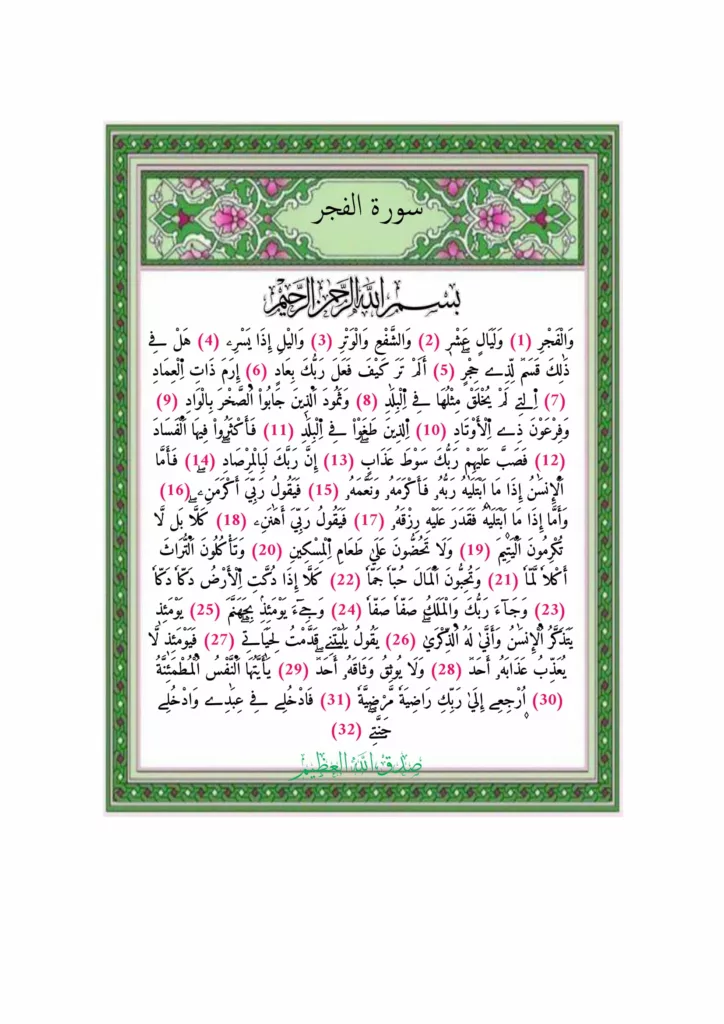 سورة الفجر
بِسْمِ اللَّهِ الرَّحْمَٰنِ الرَّحِيمِ
وَالْفَجْرِ (1) وَلَيَالٍ عَشْرٖ (2) وَالشَّفْعِ وَالْوَتْرِ (3) وَاليْلِ إِذَا يَسْرِۦ (4) هَلْ فِے
ذَٰلِكَ قَسَمٞ لِّذِے حِجْرٍۖ (5) أَلَمْ تَرَ كَيْفَ فَعَلَ رَبُّكَ بِعَادٍ (6) إِرَمَ ذَاتِ اِ۬لْعِمَادِ
(7) اِ۬لتِے لَمْ يُخْلَقْ مِثْلُهَا فِے اِ۬لْبِلَٰدِ (8) وَثَمُودَ اَ۬لذِينَ جَابُواْ اُ۬لصَّخْرَ بِالْوَادِۦ (9)
وَفِرْعَوْنَ ذِے اِ۬لَأوْتَادِ (10) اِ۬لذِينَ طَغَوْاْ فِے اِ۬لْبِلَٰدِ (11) فَأَكْثَرُواْ فِيهَا اَ۬لْفَسَادَ
(12) فَصَبَّ عَلَيْهِمْ رَبُّكَ سَوْطَ عَذَابٍۖ (13) إِنَّ رَبَّكَ لَبِالْمِرْصَادِۖ (14) فَأَمَّا
اَ۬لْإِنسَٰنُ إِذَا مَا اَ۪بْتَلَيٰهُ رَبُّهُۥ فَأَكْرَمَهُۥ وَنَعَّمَهُۥ (15) فَيَقُولُ رَبِّيَ أَكْرَمَنِۦۖ (16)
وَأَمَّا إِذَا مَا اَ۪بْتَلَيٰهُ فَقَدَرَ عَلَيْهِ رِزْقَهُۥ (17) فَيَقُولُ رَبِّيَ أَهَٰنَنِۦ (18) كَلَّاۖ بَل لَّا
تُكْرِمُونَ اَ۬لْيَتِيمَ (19) وَلَا تَحُضُّونَ عَلَيٰ طَعَامِ اِ۬لْمِسْكِينِ (20) وَتَأْكُلُونَ اَ۬لتُّرَاثَ
أَكْلاٗ لَّمّاٗ (21) وَتُحِبُّونَ اَ۬لْمَالَ حُبّاٗ جَمّاٗ (22) كَلَّا إِذَا دُكَّتِ اِ۬لْأَرْضُ دَكّاٗ دَكّاٗ
(23) وَجَآءَ رَبُّكَ وَالْمَلَكُ صَفّاٗ صَفّاٗ (24) وَجِےٓءَ يَوْمَئِذِۢ بِجَهَنَّمَۖ (25) يَوْمَئِذٖ
يَتَذَكَّرُ اُ۬لْإِنسَٰنُ وَأَنّ۪يٰ لَهُ اُ۬لذِّكْر۪يٰ (26) يَقُولُ يَٰلَيْتَنِے قَدَّمْتُ لِحَيَاتِےۖ (27) فَيَوْمَئِذٖ لَّا
يُعَذِّبُ عَذَابَهُۥ أَحَدٞ (28) وَلَا يُوثِقُ وَثَاقَهُۥ أَحَدٞۖ (29) يَٰأَيَّتُهَا اَ۬لنَّفْسُ اُ۬لْمُطْمَئِنَّةُ
(30) اُ۪رْجِعِے إِلَيٰ رَبِّكِ رَاضِيَةٗ مَّرْضِيَّةٗ (31) فَادْخُلِے فِے عِبَٰدِے وَادْخُلِے
جَنَّتِےۖ (32)
صدق الله العظيم